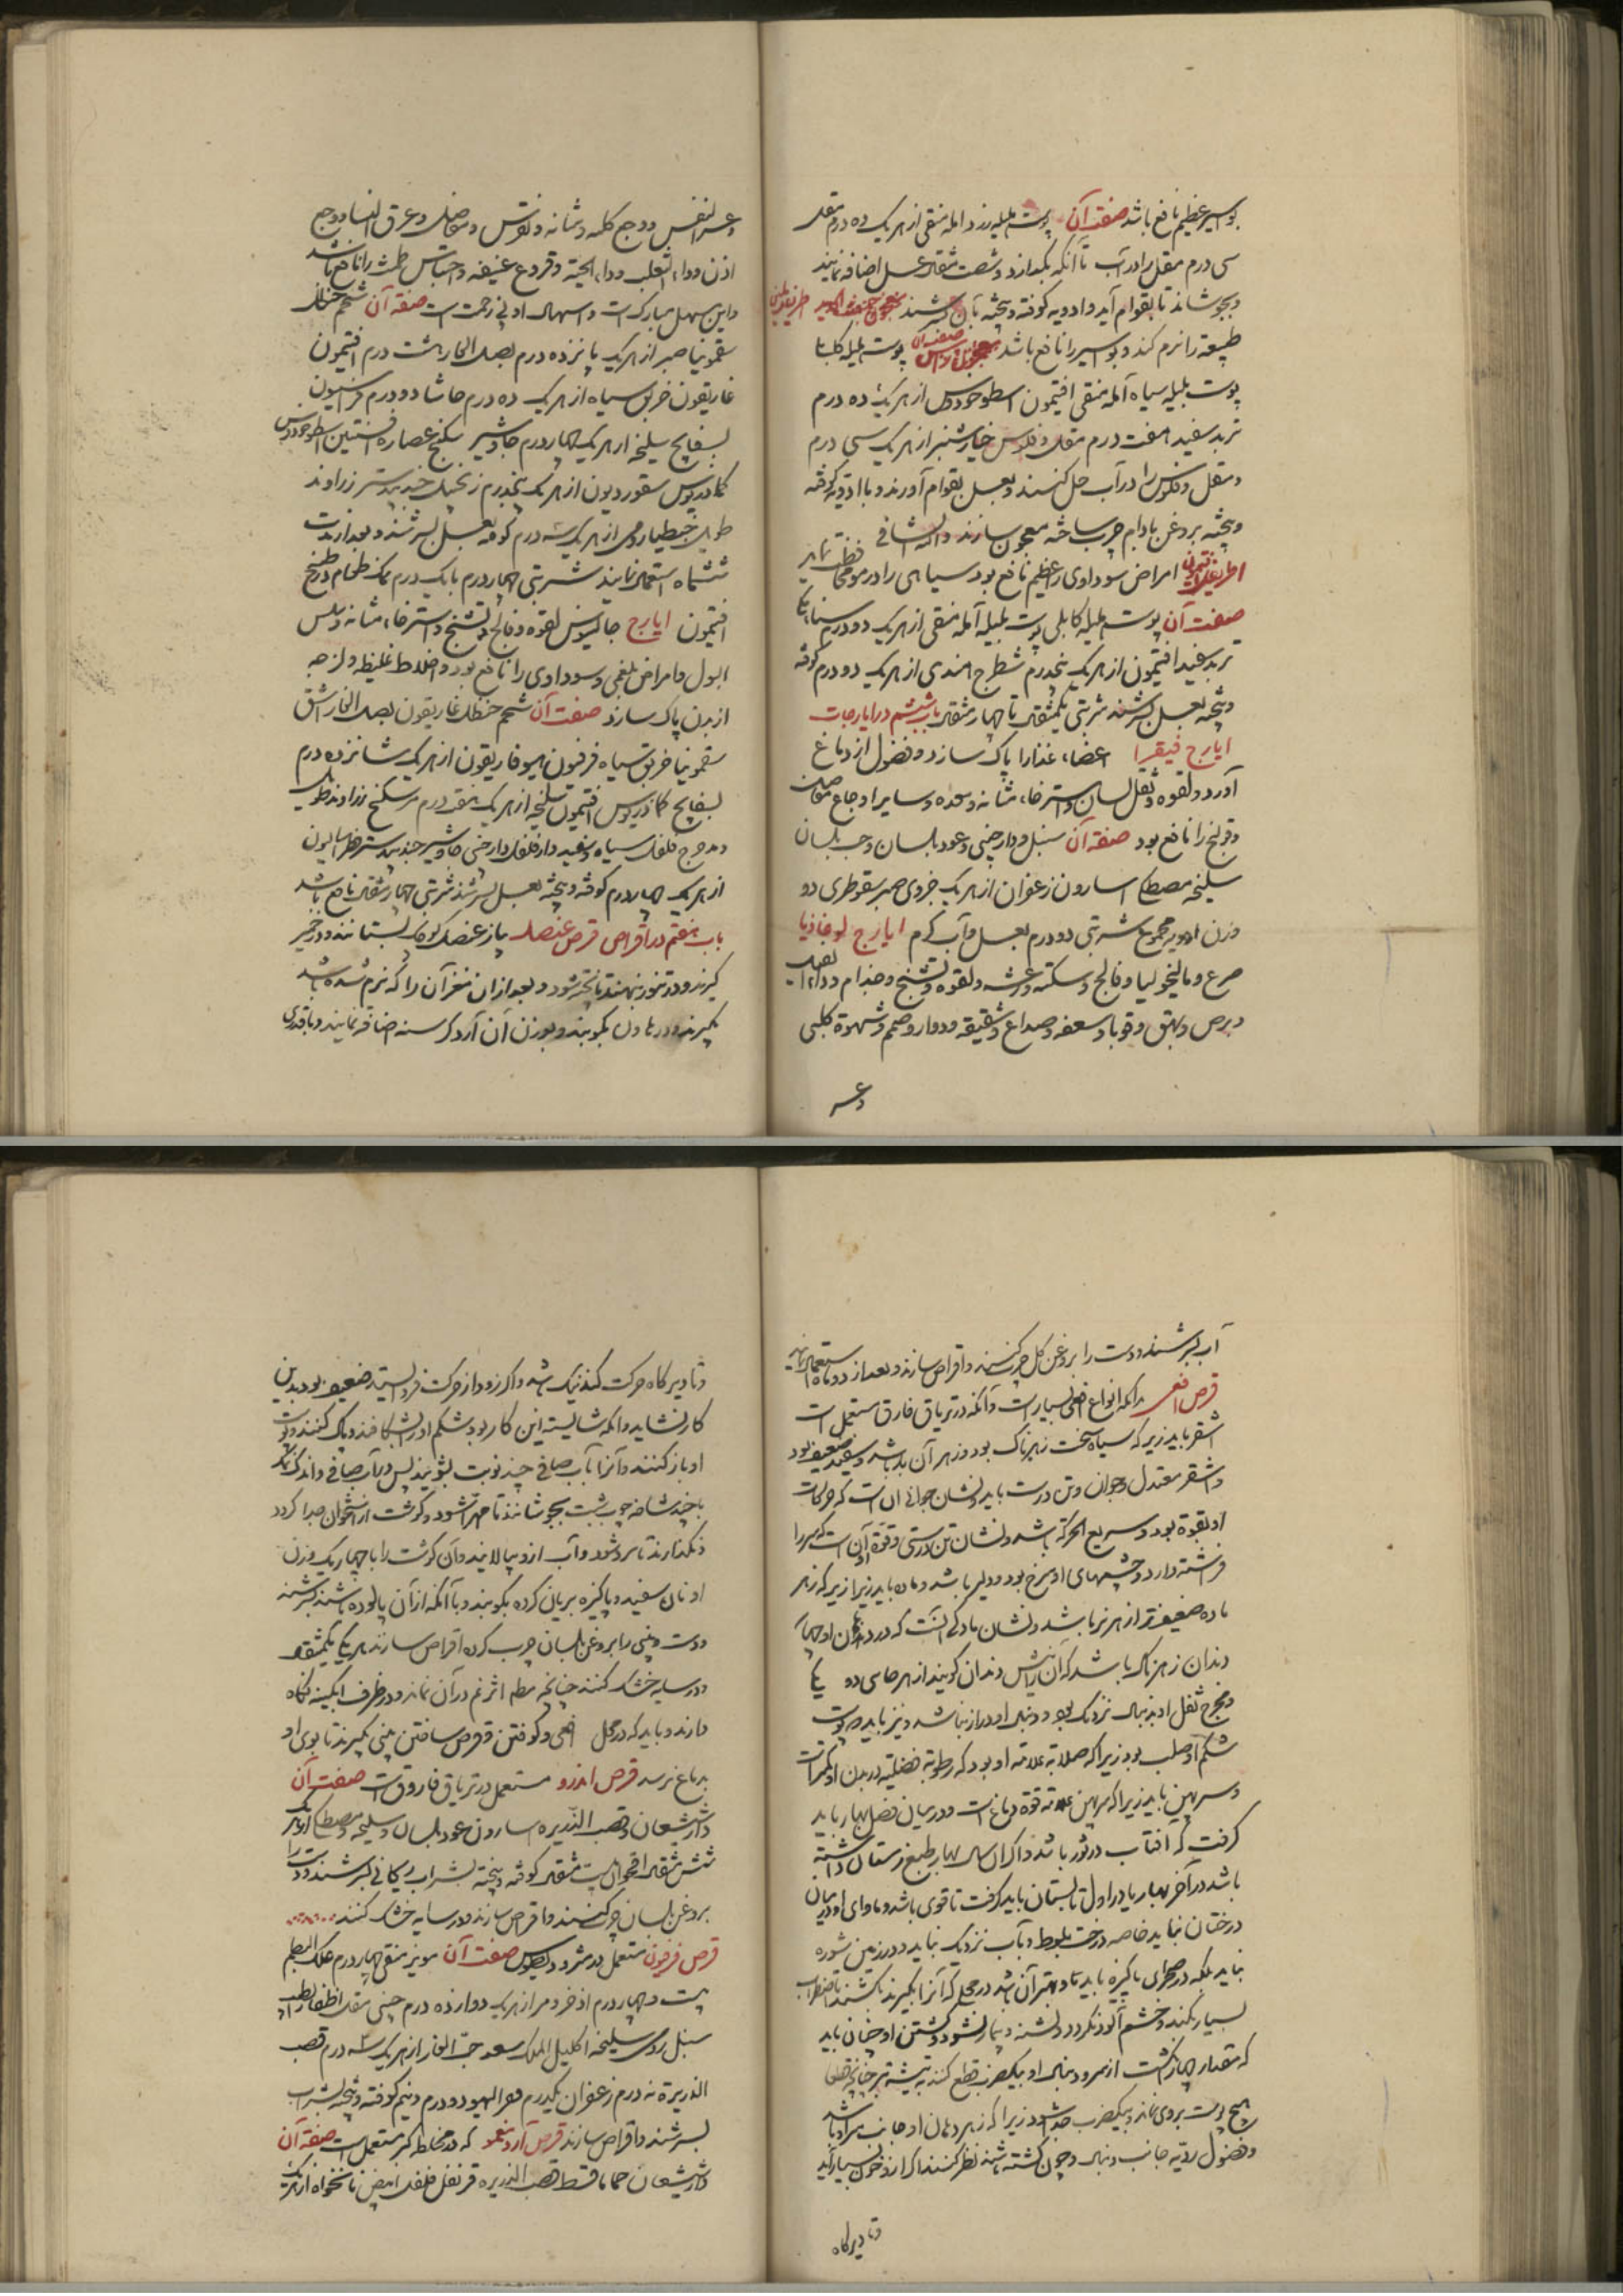 بواسیر عظیم نافع باشد صفت آن پوست هلیله زرد و آمله منقی از هر یک ده درم مقل
سی درم مقل را در آب تا آنکه بگدازد و شصت مثقال عسل اضافه نمایند
و بجوشانند تا بقوام آید و ادویه کوفته و پخته بآن بسرشند
طبیعه را نرم کند و بواسیر را نافع باشد صفت آن پوست هلیله کابلی
پوست بلیله سیاه آمله منقی افتیمون اسطوخودوس از هر یک ده درم
تربد سفید هفت درم مقل و فلوس خیارشنبر از هر یک سی درم
و مقل و فلوس را در آب حل کنند و بعسل بقوام آورند و با ادویه کوفته
و پخته بروغن بادام چرب ساخته معجون سازند والله الشافی
اطریفل افتیمون امراض سوداوی را عظیم نافع بود سیاهی را در مو
صفت آن پوست هلیله کابلی پوست بلیله آمله منقی از هر یک دو درم سناء مکی
تربد سفید افتیمون از هر یک پنجدرم شطرج هندی از هر یک دو درم کوفته
و پخته بعسل بسرشند شربتی یکمثقال تا چهار مثقال باب ششم در ایارجات
ایارج فیقرا اعضاء غذا را پاک سازد و فضول از دماغ
آورد و لقوه و ثقل لسان و استرخاء مثانه و معده و سایر اوجاع مفاصل
و قولنج را نافع بود صفة آن سنبل و دارچینی و عود بلسان و حب بلسان
سلیخه مصطکی اسارون زعفران از هر یک جزوی صبر سقوطری دو
وزن ادویه مجموع شربتی دو درم بعسل و آب گرم ایارج لوغاذیا
صرع و مالیخولیا و فالج و سکته و رعشه و لقوه و تشنج و جذام و داء الفیل
و برص و بهق و قوبا و سعفه و صداع و شقیقه و دوار و صمم و شهوة کلبی
وعسر
وعسر النفس و وجع کلیه و مثانه و نقرس و مفاصل و عرق النسا و وجع
اذن و داء الثعلب و داء الحیة و قروح عفنه و احتباس طمث را نافع باشد
و این مسهل مبارک است و اسهال او بی زحمت است صفة آن شحم حنظل
سقمونیا صبر از هر یک پانزده درم بصل الفار هشت درم افتیمون
غاریقون خربق سیاه از هر یک ده درم حاشا دو درم فراسیون
بسفایج سلیخه از هر یک چهار درم جاوشیر سکبینج عصاره افسنتین اسطوخودوس
کمادریوس سقوردیون از هر یک پنجدرم زنجبیل جندبیدستر زراوند
طویل جنطیانا رومی از هر یک سه درم کوفته بعسل بسرشند و بعد از مدت
ششماه استعمال نمایند شربتی چهار درم با یک درم نمک طعام در طبیخ
افتیمون ایارج جالینوس لقوه و فالج و تشنج و استرخاء مثانه و سلس
البول و امراض بلغمی و سوداوی را نافع بود و اخلاط غلیظه و لزجه
از بدن پاک سازد صفت آن شحم حنظل غاریقون بصل الفار اشق
سقمونیا خربق سیاه فرفیون هیوفاریقون از هر یک شانزده درم
بسفایج کمادریوس افتیمون سلیخه از هر یک درم مر سکبینج زراوند طویل
و مدحرج فلفل سیاه و سفید دارفلفل دارچینی جاوشیر جندبیدستر فطراسالیون
از هر یک چهار درم کوفته و پخته بعسل بسرشند شربتی چهار مثقال نافع باشد
باب هفتم در اقراص قرص عنصل پیاز عنصل کوچک بستانند و در خمیر
گیرند و در تنور نهند تا پخته شود و بعد از آن مغز آن را که نرم شده باشد
بگیرند و در هاون بکوبند و بوزن آن آرد کرسنه اضافه نمایند و با قدری
آب بسرشند و دست را بروغن گل چرب کنند و اقراص سازند و بعد از دو ماه استعمال نمایند
قرص افعی بدانکه انواع افعی بسیار است و آنکه در تریاق فارق مستعمل است
اشقر باید زیرا که سیاه سخت زهرناک بود و زهر آن بد باشد و سفید ضعیف بود
و اشقر معتدل و جوان و تن درست باید و نشان جوانی آن است که حرکات
او بقوة بود و سریع الحرکة باشد و نشان تن درستی و قوة آن است که سر را
افراشته دارد و چشمهای او سرخ بود و دلیر باشد و ماده باید زیرا که زهر
ماده ضعیفتر از زهر نر باشد و نشان مادگی آنست که در دهان او چهار
دندان زهرناک باشد که آن را نیش دندان گویند از هر جانبی دو
و مخرج ثفل او بدنبال نزدیک بود و دنبال او دراز نباشد و نیز باید پوست
شکم او صلب بود زیرا که صلابة علامة او بود که رطوبة فضلیه در بدن او کمتر است
و سر پهن باید زیرا که سر پهن علامة قوة دماغ است و در میان فصل بهار باید
گرفت که افتاب در ثور باشد و اگر آن سال بهار طبع زمستان داشته
باشد در آخر بهار یا در اول تابستان باید گرفت تا قوی باشد و ماوای او در میان
درختان نباید خاصه درخت بلوط و بآب نزدیک نباید و در زمین شوره
نباید بلکه در صحرای پاکیزه باید تا و بهتر آن باشد در محلی که آنرا بگیرند بکشند تا اضطراب
بسیار نکند و خشم آلود نگردد و تشنه و بیمار نشود و کشتن او چنان باید
که مقدار چهار انگشت از سر و دنبال او بیکضرب قطع کنند بتیشه تیز چنانچه
هیچ پوست بروی نماند و بیکضرب جدا شود زیرا که زهر دهان او جانب سر او باشد
و فضول ردیه جانب دنبال و چون کشته باشند نظر کنند اگر ازو خون بسیار آید
و تا دیرگاه
و تا دیرگاه حرکت کند نیک باشد و اگر زود از حرکت فروایستد ضعیف بود بدین
کار نشاید و آنکه شایسته این کار بود شکم او را بشکافند و پاک کنند و پوست
او باز کنند و آنرا بآب صافی چند نوبت بشویند پس در آب صافی و اندک نمک
با چند شاخه چوب شبت بجوشانند تا مهرا شود و گوشت از استخوان جدا گردد
و بگذارند تا سرد شود و آب ازو بپالایند و آن گوشت را با چهار یک وزن
او نان سفید و پاکیزه بریان کرده بکوبند و با آنکه از آن پالوده باشند بسرشند
و دست و بینی را بروغن بلسان چرب کرده اقراص سازند هر یکی یکمثقال
و در سایه خشک کنند چنانچه مطلقا اثر نم در آن نماند و در ظرف آبگینه نگاه
دارند و باید که در محل افعی و کوفتن و قرص ساختن بینی بگیرند تا بوی او
بدماغ نرسد قرص اندرو مستعمل در تریاق فاروق است صفت آن
دارشیشعان و قصب الذریره اسارون عود بلسان و سلیخه و مصطکی از هر یک
شش مثقال اقحوان بیست مثقال کوفته و پخته بشراب ریحانی بسرشند و دست را
بروغن بلسان چرب کنند و اقراص سازند و در سایه خشک کنند
قرص فرفیون مستعمل در مثرودیطوس صفت آن مویز منقی چهار درم علک البطم
بیست و چهار درم اذخر و مر از هر یک دوازده درم دارچینی مقل اظفار الطیب
سنبل رومی سلیخه اکلیل الملک سعد حب الغار از هر یک سه درم قصب
الذریرة نه درم زعفران یکدرم قفر الیهود دو درم و نیم کوفته و پخته بشراب
بسرشند و اقراص سازند قرص که در مخلط اکبر مستعمل است صفة آن
دارشیشعان حماما قسط قصب الذریره قرنفل فلفل ابیض نانخواه از هر یک